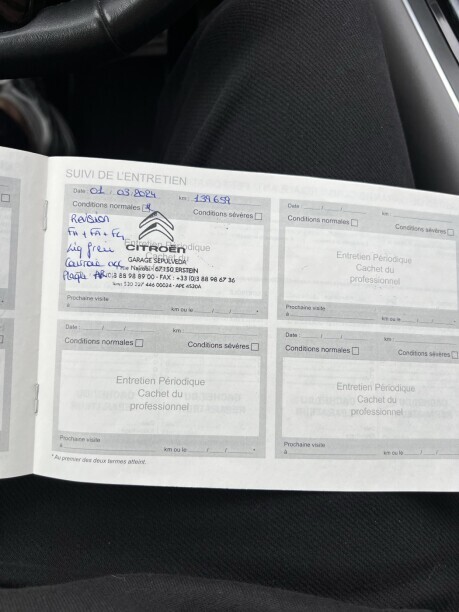 SUIVI DE L'ENTRETIEN
Date : 01 / 03.2024 km : 139.659
Conditions normales Conditions sévères
REVISION
FH + FA + FG
Liq frein
Plaq AR
Entretien Périodique
CITROËN
GARAGE SEPULVEDA
67150 ERSTEIN
3 88 98 89 00 - FAX : +33 (0)3 88 98 67 36
Prochaine visite
à km ou le / / *
Date : / / km :
Conditions normales Conditions sévères
Entretien Périodique
Cachet du
professionnel
Prochaine visite
à km ou le / / *
Date : / / km :
Conditions normales Conditions sévères
Entretien Périodique
Cachet du
professionnel
Prochaine visite
à km ou le / / *
Date : / / km :
Conditions normales Conditions sévères
Entretien Périodique
Cachet du
professionnel
Prochaine visite
à km ou le / / *
* Au premier des deux termes atteint.